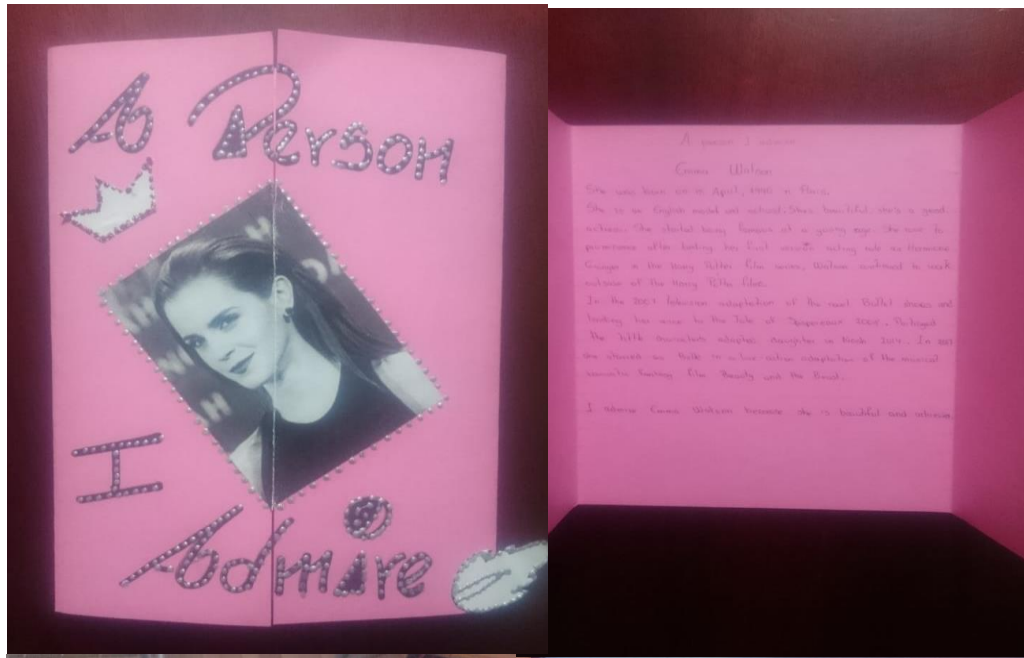 A Person
I
Admire
A person I admire
Emma Watson
She was born on 15 April, 1990 in Paris.
She is an English model and activist. She's beautiful, she's a good
actress. She started being famous at a young age. She rose to
prominence after landing her first acting role as Hermione
Granger in the Harry Potter film series, Watson continued to work
outside of the Harry Potter films.
In the 2007 television adaptation of the novel Ballet Shoes and
lending her voice to The Tale of Despereaux 2008.
The adopted daughter in March 2017. In 2017
she starred as Belle in a live-action adaptation of the musical
romantic fantasy film Beauty and the Beast.
I admire Emma Watson because she is beautiful and